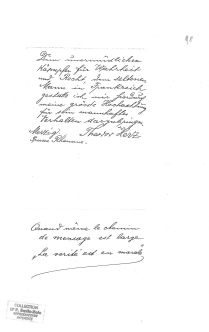 Dem unermüdlichen
Kämpfer für Wahrheit
und Recht, dem seltenen
Manne in Frankreich
gestatte ich mir hiedurch
meine grösste Hochachtung
für sein mannhaftes
Verhalten darzubringen
Theodor Herz
Quand même le chemin
de mensage est large
„La verité est en marche"
COLLECTION